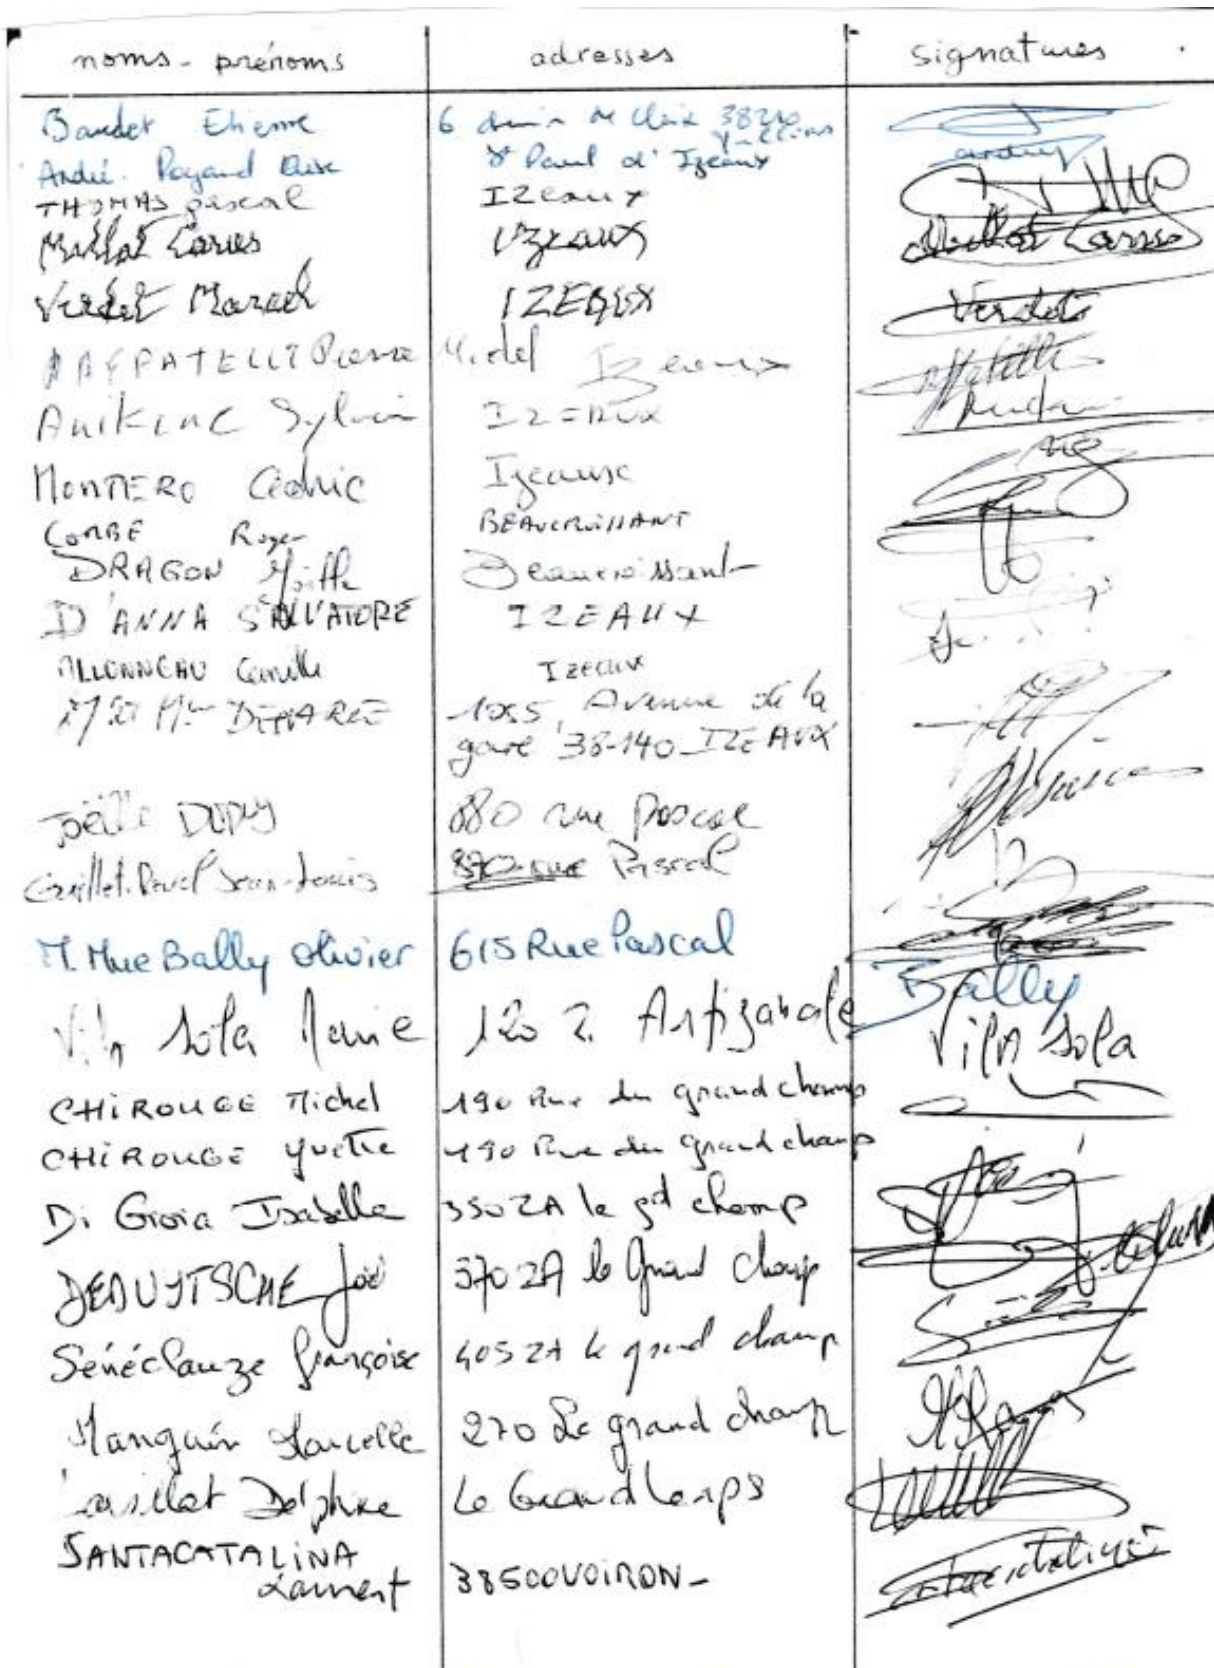 noms - prénoms adresses signatures
Baudet Etienne 6 chemin de Claix 38210
André. Payand Elise St Paul d'Izeaux
THOMAS Pascal Izeaux
Millat Izeaux Millat
Verdet Marcel IZEAUX Verdet
Pierre Michel Izeaux
Sylvain IZEAUX
MONTERO Cédric Izeaux
COMBE Roger BEAUCROISSANT
DRAGON Beaucroissant
D'ANNA SALVATORE IZEAUX
ALLONNEAU Camille Izeaux
Mme 1055, Avenue de la
gare 38-140 IZEAUX
Joëlle DUPUY 880 rue Pascal
Guillet. Jean-Louis 870 rue Pascal
M. Mme Bally Olivier 615 Rue Pascal Bally
Vila Sola Marie 120 Z. Artizanale Vila Sola
CHIROUGE Michel 190 Rue du grand champ
CHIROUGE Yvette 190 Rue du grand champ
Di Gioia Isabelle 350 ZA le gd champ
DEBUYTSCHE Joël 370 ZA le Grand Champ
Sénéclauze françoise 405 ZA le grand champ
Manguin Marcelle 270 Le grand champ
Delphine Le Grand Lemps
SANTACATALINA
Laurent 38500 VOIRON-